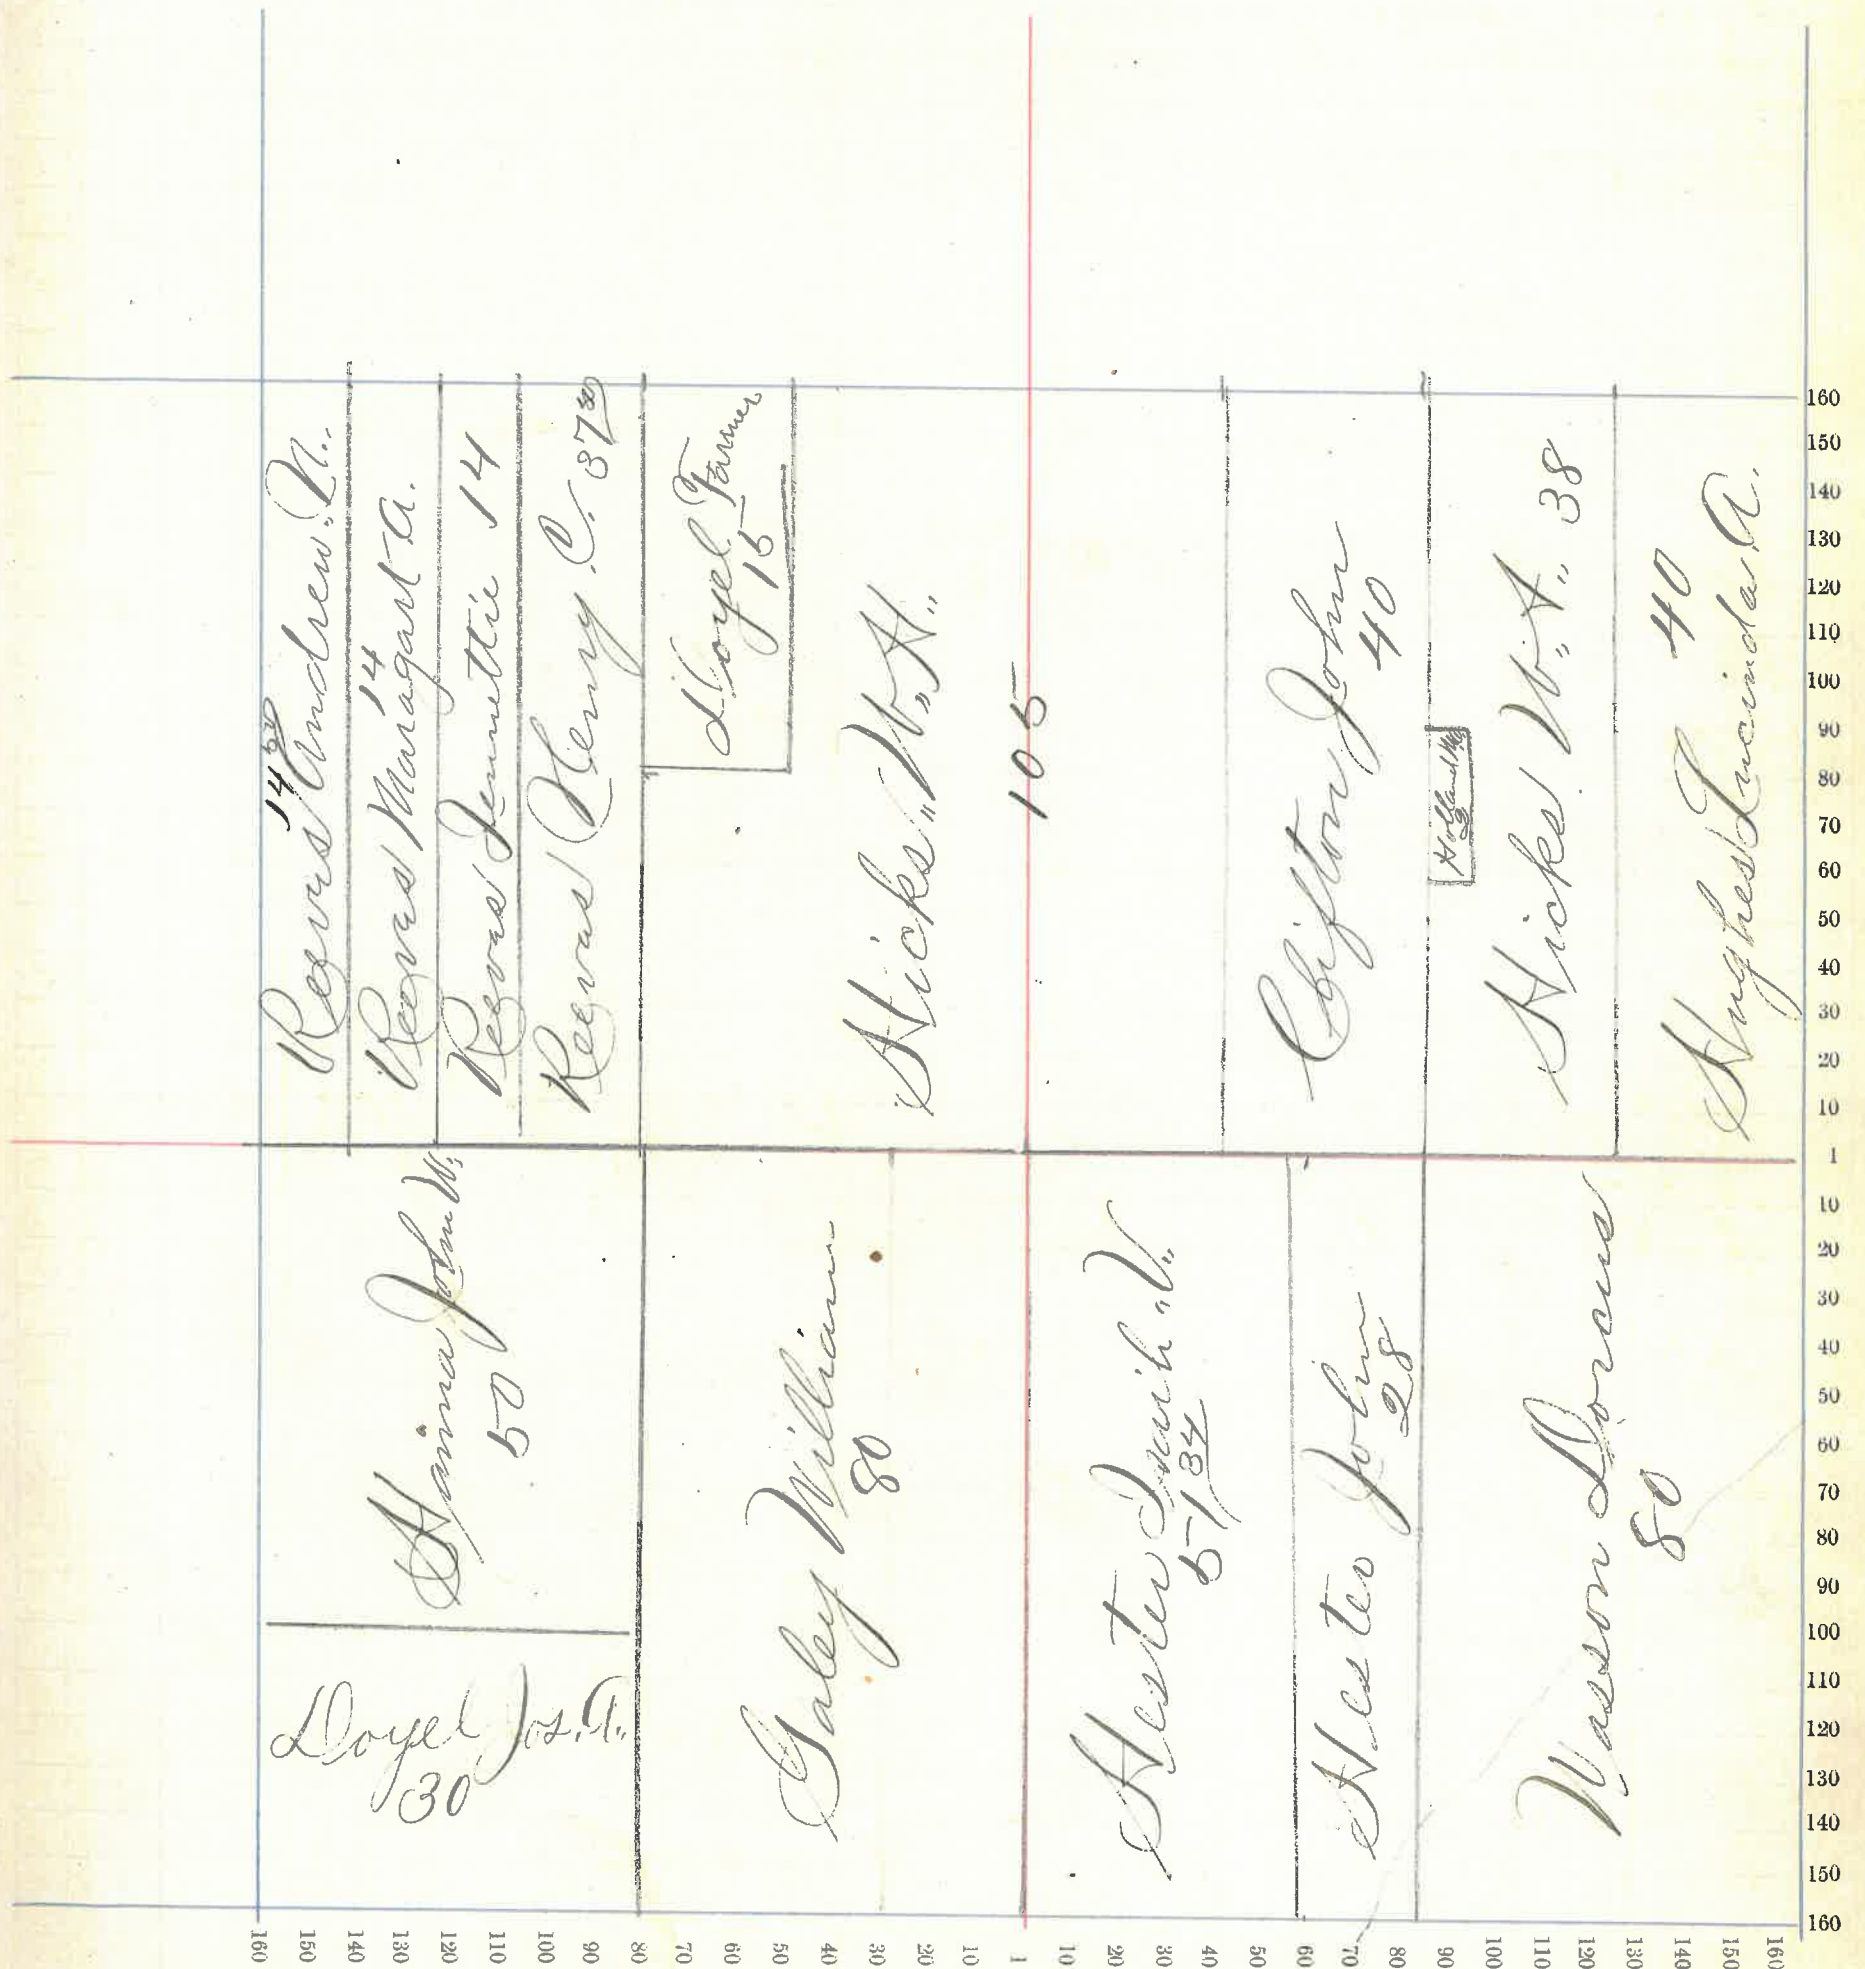 14 50
Reevis Andrew. N.
14
Reevas Maragart A.
Reevas Jennettie 14
Reevas Henry. C. 37 50
Doyel Farmer
15
Hicks W. H.
105
Clifton John
40
Holland
Hicks W. A. 38
40
Hughes Lucinda. A.
Hanna John W.
50
Doyel Jos. T.
30
Galey William
80
Hester V.
51 34
Hester John
28
Wasson Dorcus
80
160
150
140
130
120
110
100
90
80
70
60
50
40
30
20
10
1
10
20
30
40
50
60
70
80
90
100
110
120
130
140
150
160
160
150
140
130
120
110
100
90
80
70
60
50
40
30
20
10
1
10
20
30
40
50
60
70
80
90
100
110
120
130
140
150
160